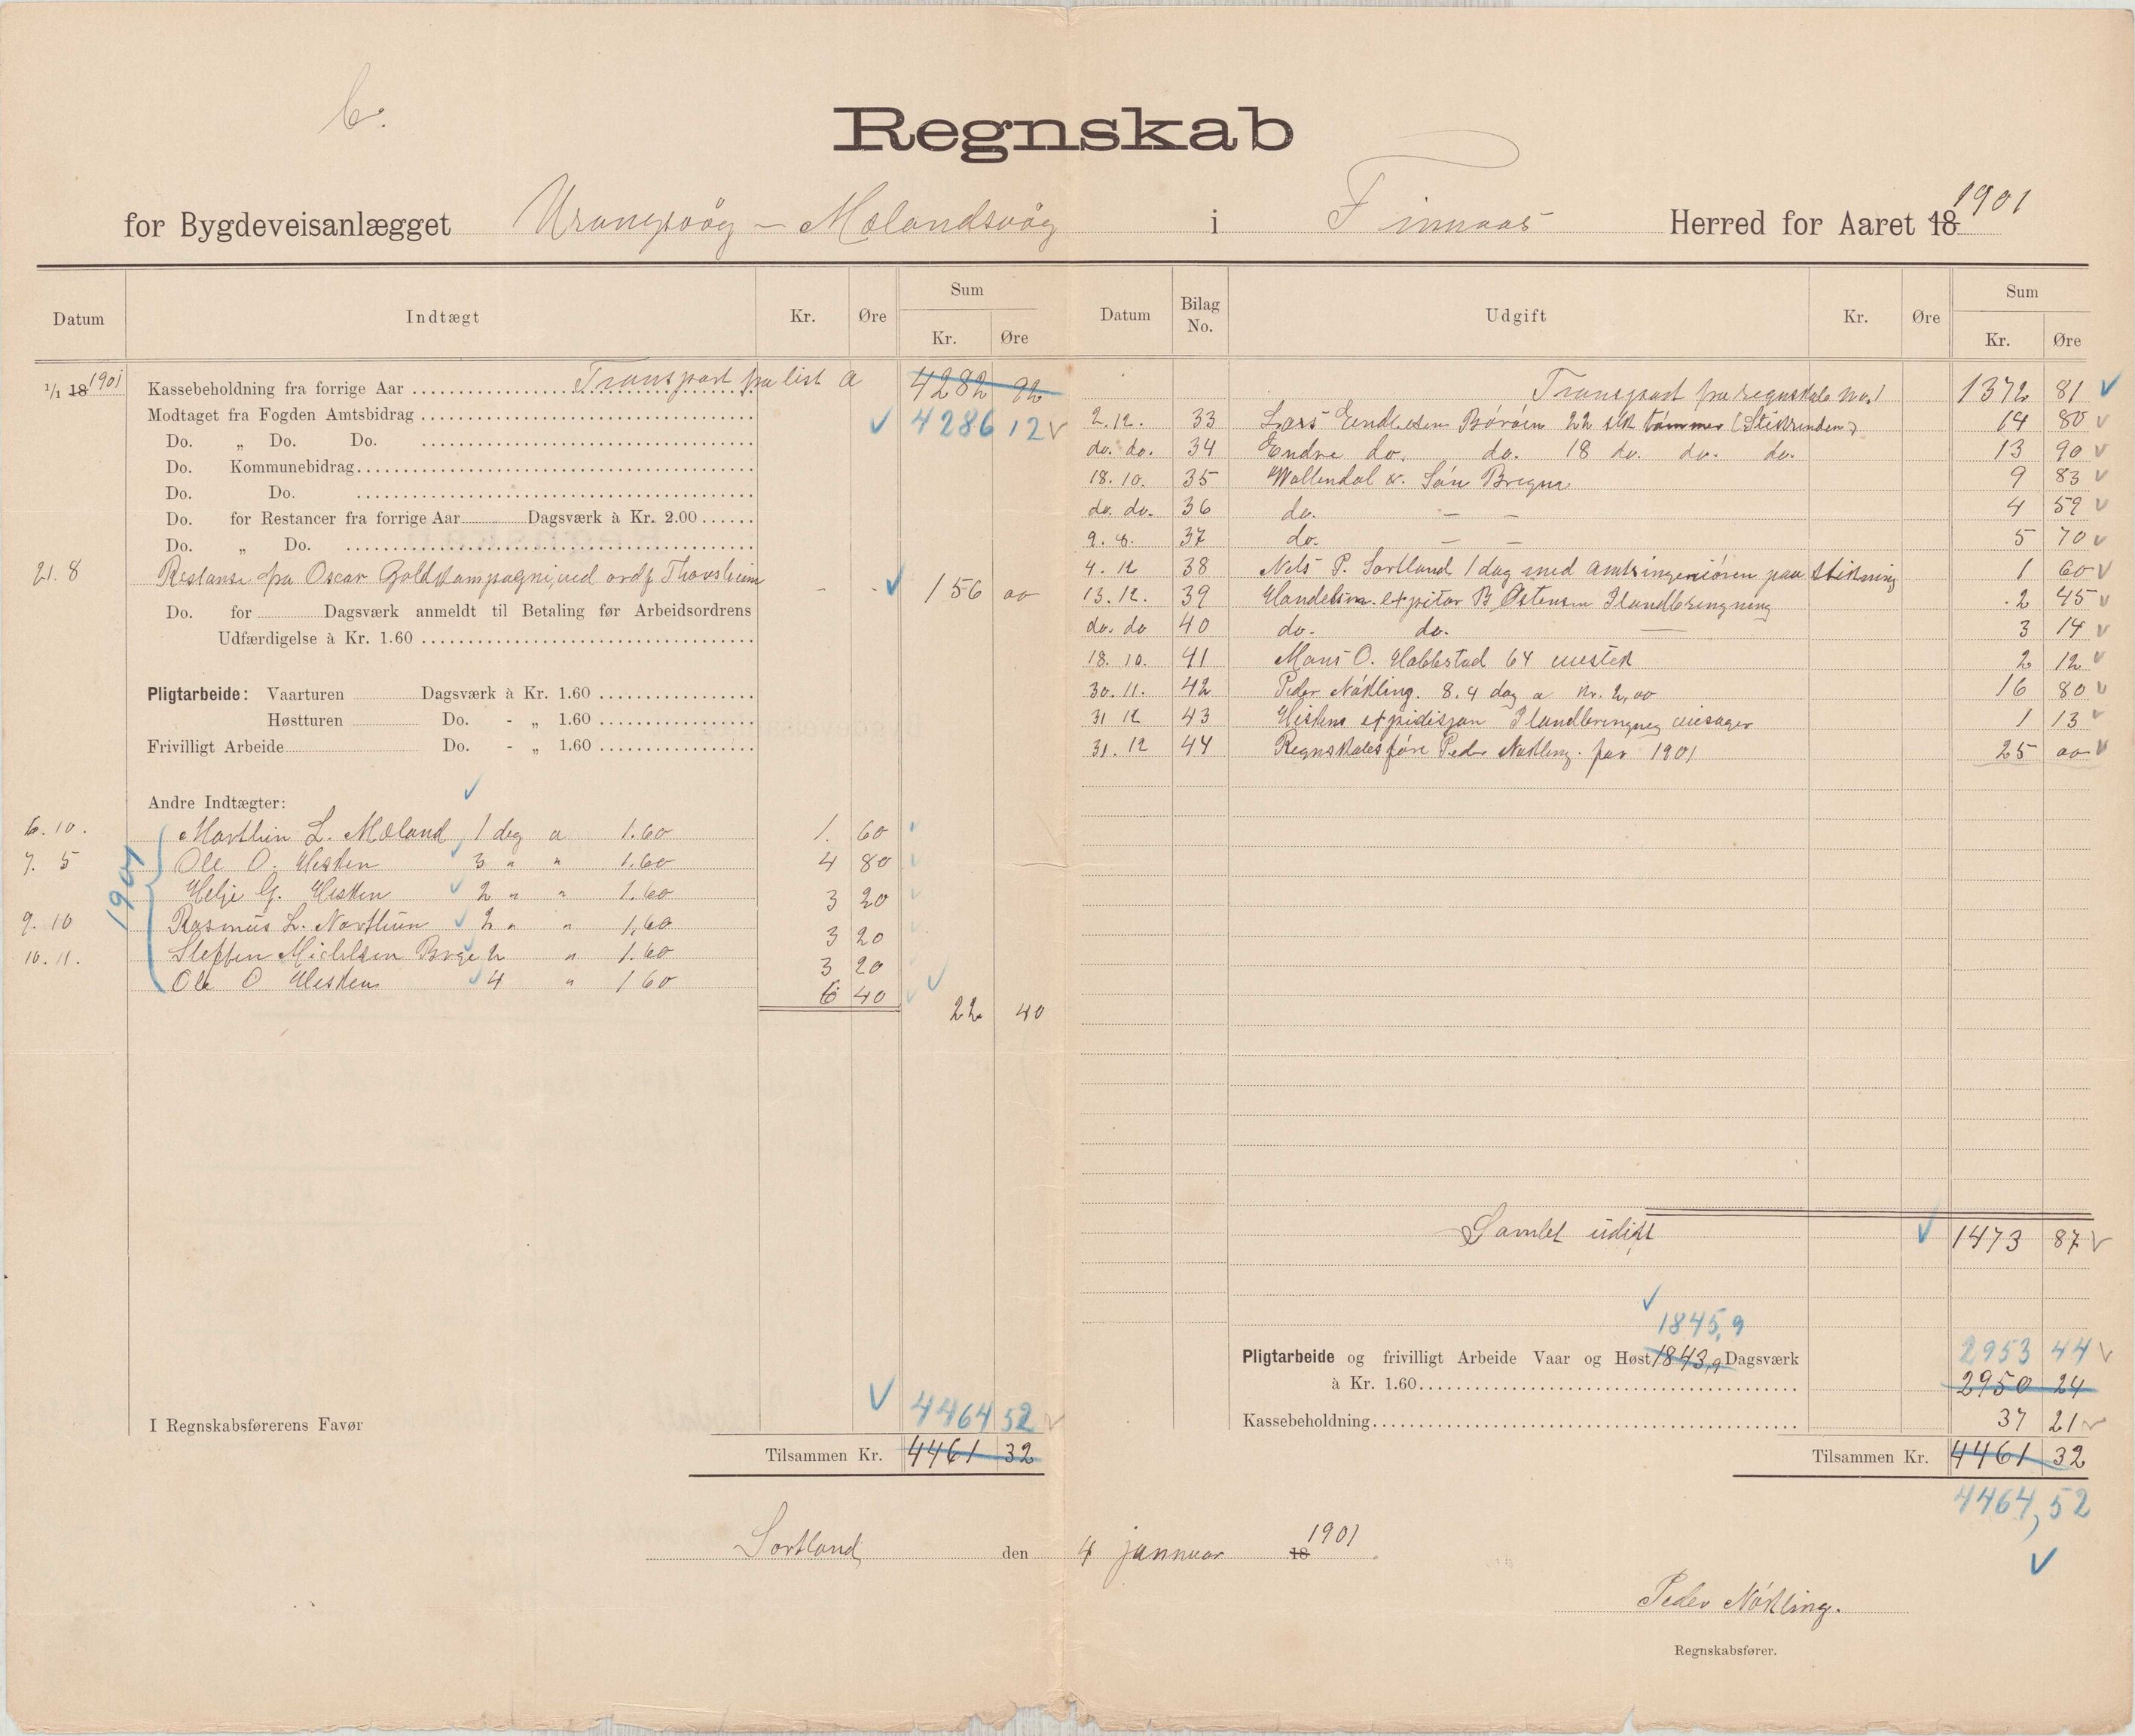 C.
Regnskab
for Bygdeveisanlægget Urangsvåg - Mælandsvåg i Finnaas Herred for Aaret 18 1901
Datum Indtægt Kr. Øre Sum Kr. Øre
1/1 18 1901 Kassebeholdning fra forrige Aar Transport fra list a 4282 92
Modtaget fra Fogden Amtsbidrag 4286 12
Do. „ Do. Do.
Do. Kommunebidrag
Do. Do.
Do. for Restancer fra forrige Aar Dagsværk à Kr. 2.00
Do. „ Do.
21. 8 Restanse fra Oscar Goldkampagni, ved ordf. Thorsheim - - 156 00
Do. for Dagsværk anmeldt til Betaling før Arbeidsordrens
Udfærdigelse à Kr. 1.60
Pligtarbeide: Vaarturen Dagsværk à Kr. 1.60
Høstturen Do. - „ 1.60
Frivilligt Arbeide Do. - „ 1.60
Andre Indtægter:
1901
6. 10. Marthin L. Mæland, 1 dag a 1.60 1. 60
7. 5 Ole O. Hisken 3 " " 1.60 4 80
Helje G. Hisken 2 " " 1.60 3 20
9. 10 Rasmus L. Nordhun 2 " " 1,60 3 20
10. 11. Steffen Michelsen 2 " 1.60 3 20
Ole O Hisken 4 " 1 60 6 40
22 40
I Regnskabsførerens Favør 4464 52
Tilsammen Kr. 4461 32
Datum Bilag No. Udgift Kr. Øre Sum Kr. Øre
Transport fra regnskab No. 1 1372 81
2. 12. 33 Lars Endresen Börøen 22 stk tømmer (Stikrenden) 14 80
do. do. 34 Endre do. do. 18 do. do. do. 13 90
18. 10. 35 Wallendal & Sön Bergen 9 83
do. do. 36 do. - - 4 59
9. 8. 37 do. - - 5 70
4. 12 38 Nels P. Sortland 1 dag med amtsingeniören paa Stikning 1 60
13. 12. 39 Handelsm. exspitør B. Östensen Ilandbringning 2 45
do. do 40 do. do. — 3 14
18. 10. 41 Mons O. Habbestad 64 2 12
30. 11. 42 Peder Nökling. 8.4 dag a Kr. 2,00 16 80
31 12 43 Hisken expidisjon Ilandbringneg 1 13
31. 12 44 Regnskabsföre Peder Nökling. for 1901 25 00
Samlet udigt 1473 87
1845,9
Pligtarbeide og frivilligt Arbeide Vaar og Høst 1843,9 Dagsværk 2953 44
à Kr. 1.60 2950 24
Kassebeholdning 37 21
Tilsammen Kr. 4461 32
4464,52
Sortland den 4 januar 18 1901
Peder Nökling.
Regnskabsfører.